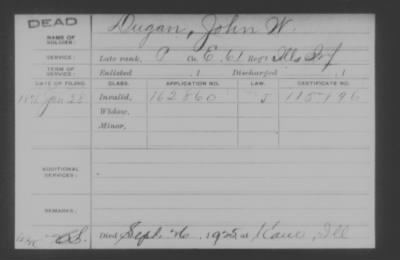 DEAD
NAME OF SOLDIER: Dugan, John W.
SERVICE: Late rank, P Co. E, 61 Reg't Ills Inf
TERM OF SERVICE: Enlisted , 1 Discharged , 1
DATE OF FILING. CLASS. APPLICATION NO. LAW. CERTIFICATE NO.
Jan 28 Invalid, 162860 J 115196
Widow,
Minor,
ADDITIONAL SERVICES:
REMARKS:
Died Sept. 26, 1925, at Kane, Ill